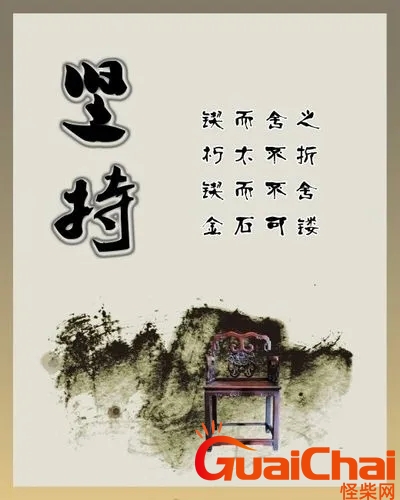 坚持
锲而舍之
朽木不折
锲而不舍
金石可镂
GuaiChai
怪柴网